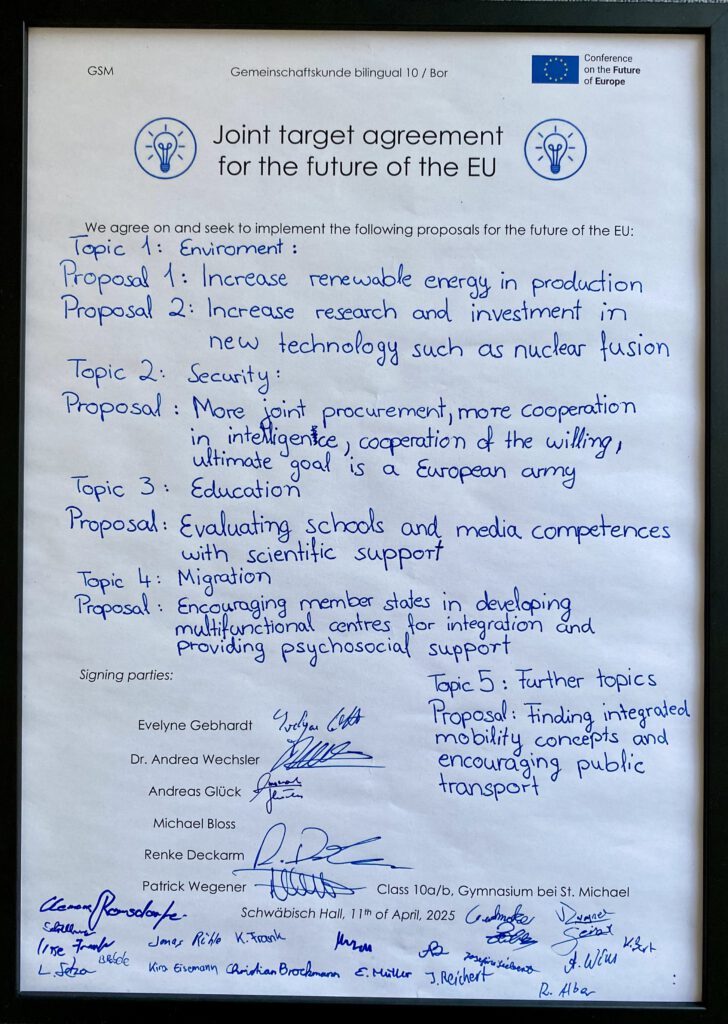 GSM
Gemeinschaftskunde bilingual 10 / Bor
Conference
on the Future
of Europe
Joint target agreement
for the future of the EU
We agree on and seek to implement the following proposals for the future of the EU:
Topic 1: Enviroment:
Proposal 1: Increase renewable energy in production
Proposal 2: Increase research and investment in
new technology such as nuclear fusion
Topic 2: Security:
Proposal: More joint procurement, more cooperation
in intelligence, cooperation of the willing,
ultimate goal is a European army
Topic 3: Education
Proposal: Evaluating schools and media competences
with scientific support
Topic 4: Migration
Proposal: Encouraging member states in developing
multifunctional centres for integration and
providing psychosocial support
Topic 5: Further topics
Proposal: Finding integrated
mobility concepts and
encouraging public
transport
Signing parties:
Evelyne Gebhardt
Dr. Andrea Wechsler
Andreas Glück
Michael Bloss
Renke Deckarm
Patrick Wegener
Class 10a/b, Gymnasium bei St. Michael
Schwäbisch Hall, 11th of April, 2025
Jonas Rühle K. Frank
Kira Eisemann Christian Brockmann E. Müller J. Reichert
R. Alber